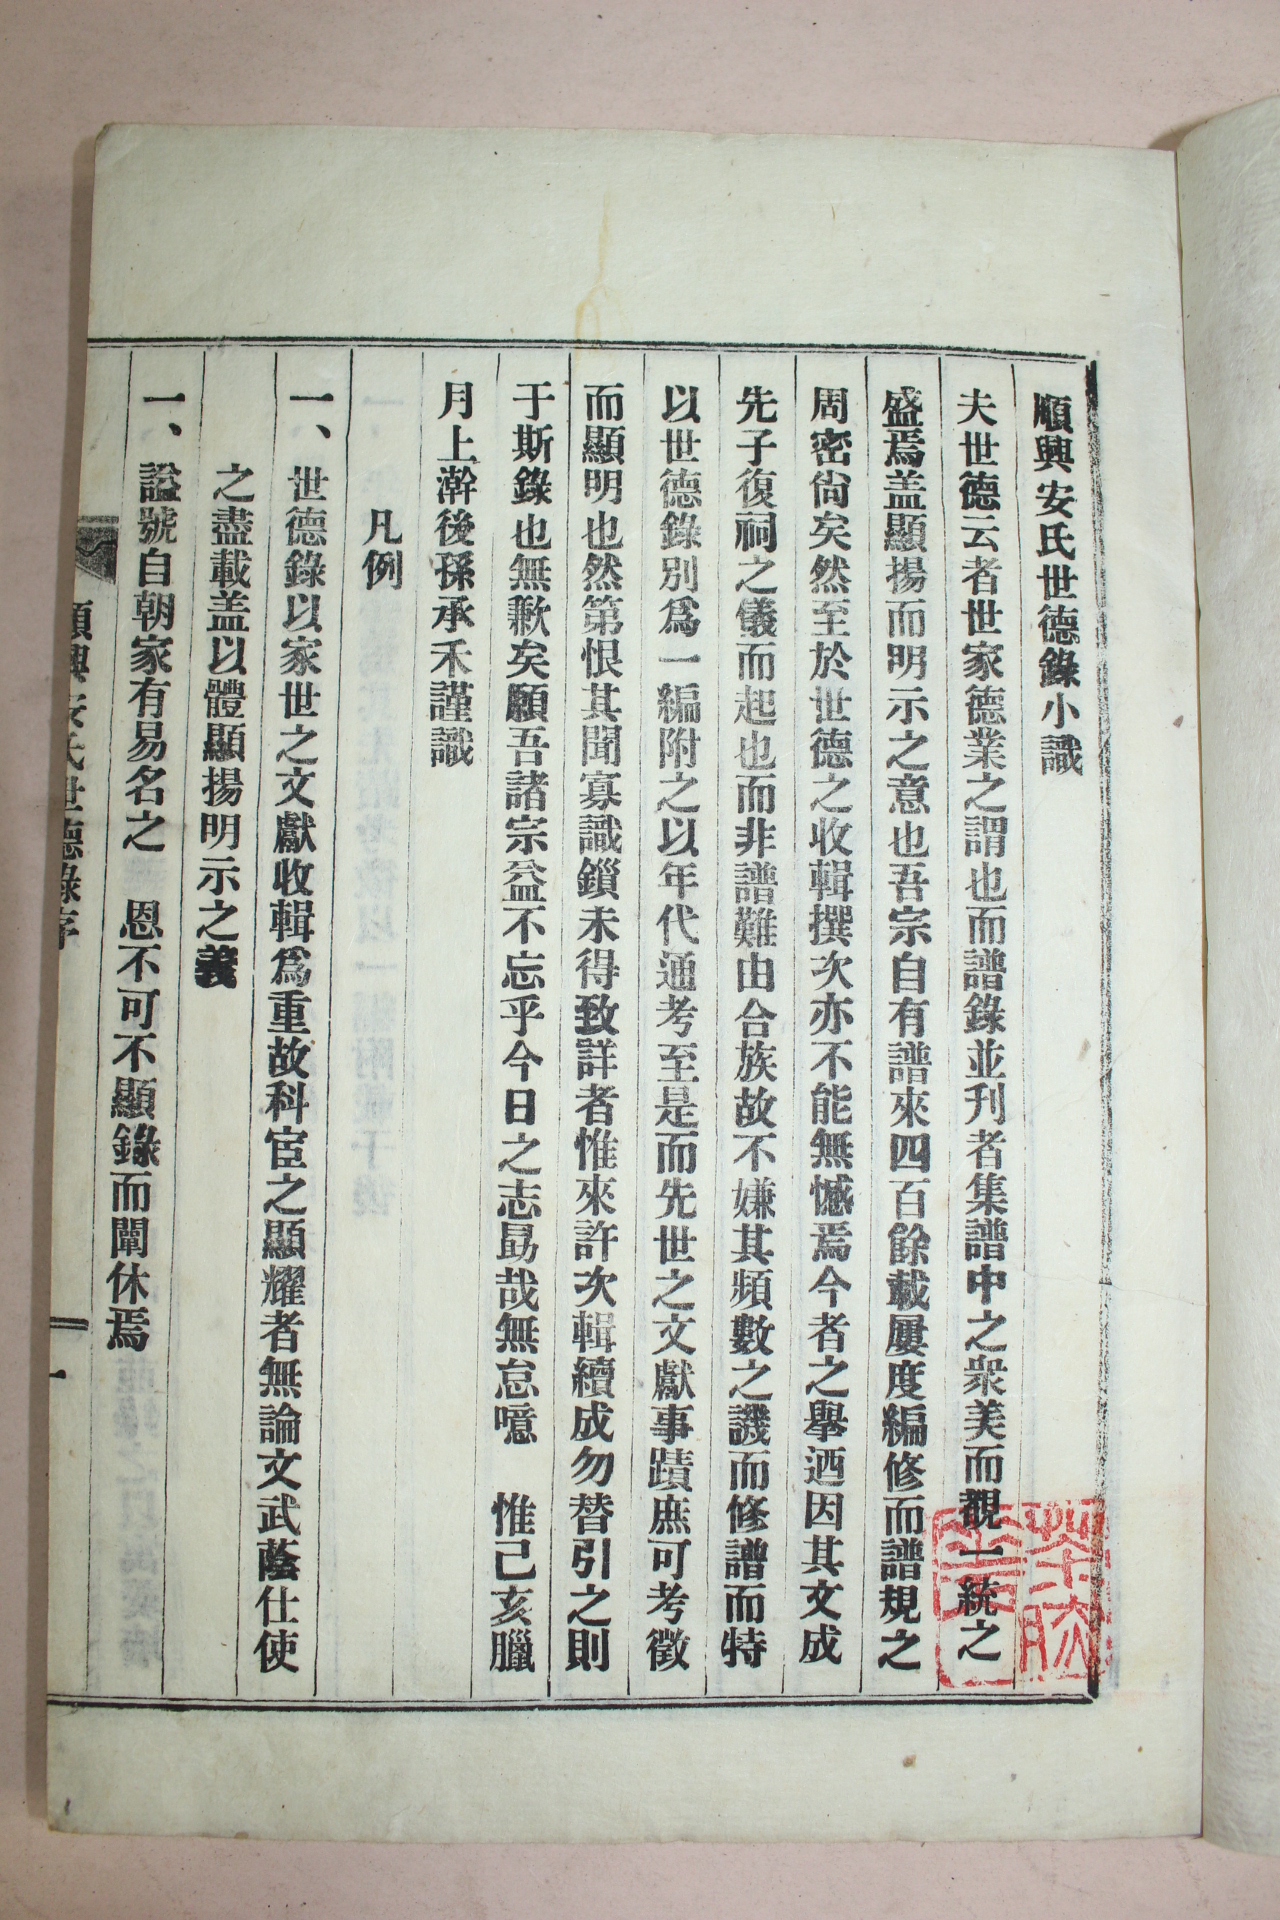 順興安氏世德錄小識
夫世德云者世家德業之謂也而譜錄並刋者集譜中之衆美而觀一統之
盛焉盖顯揚而明示之意也吾宗自有譜來四百餘載屢度編修而譜規之
周密尙矣然至於世德之收輯撰次亦不能無憾焉今者之擧迺因其文成
先子復祠之儀而起也而非譜難由合族故不嫌其頻數之譏而修譜而特
以世德錄別爲一編附之以年代通考至是而先世之文獻事蹟庶可考徵
而顯明也然第恨其聞寡識鎖未得致詳者惟來許次輯續成勿替引之則
于斯錄也無歉矣願吾諸宗益不忘乎今日之志勗哉無怠噫　惟己亥臘
月上澣後孫承禾謹識
凡例
一、世德錄以家世之文獻收輯爲重故科宦之顯耀者無論文武蔭仕使
之盡載盖以體顯揚明示之義
一、謚號自朝家有易名之　恩不可不顯錄而闡休焉
順興安氏世德錄序
一